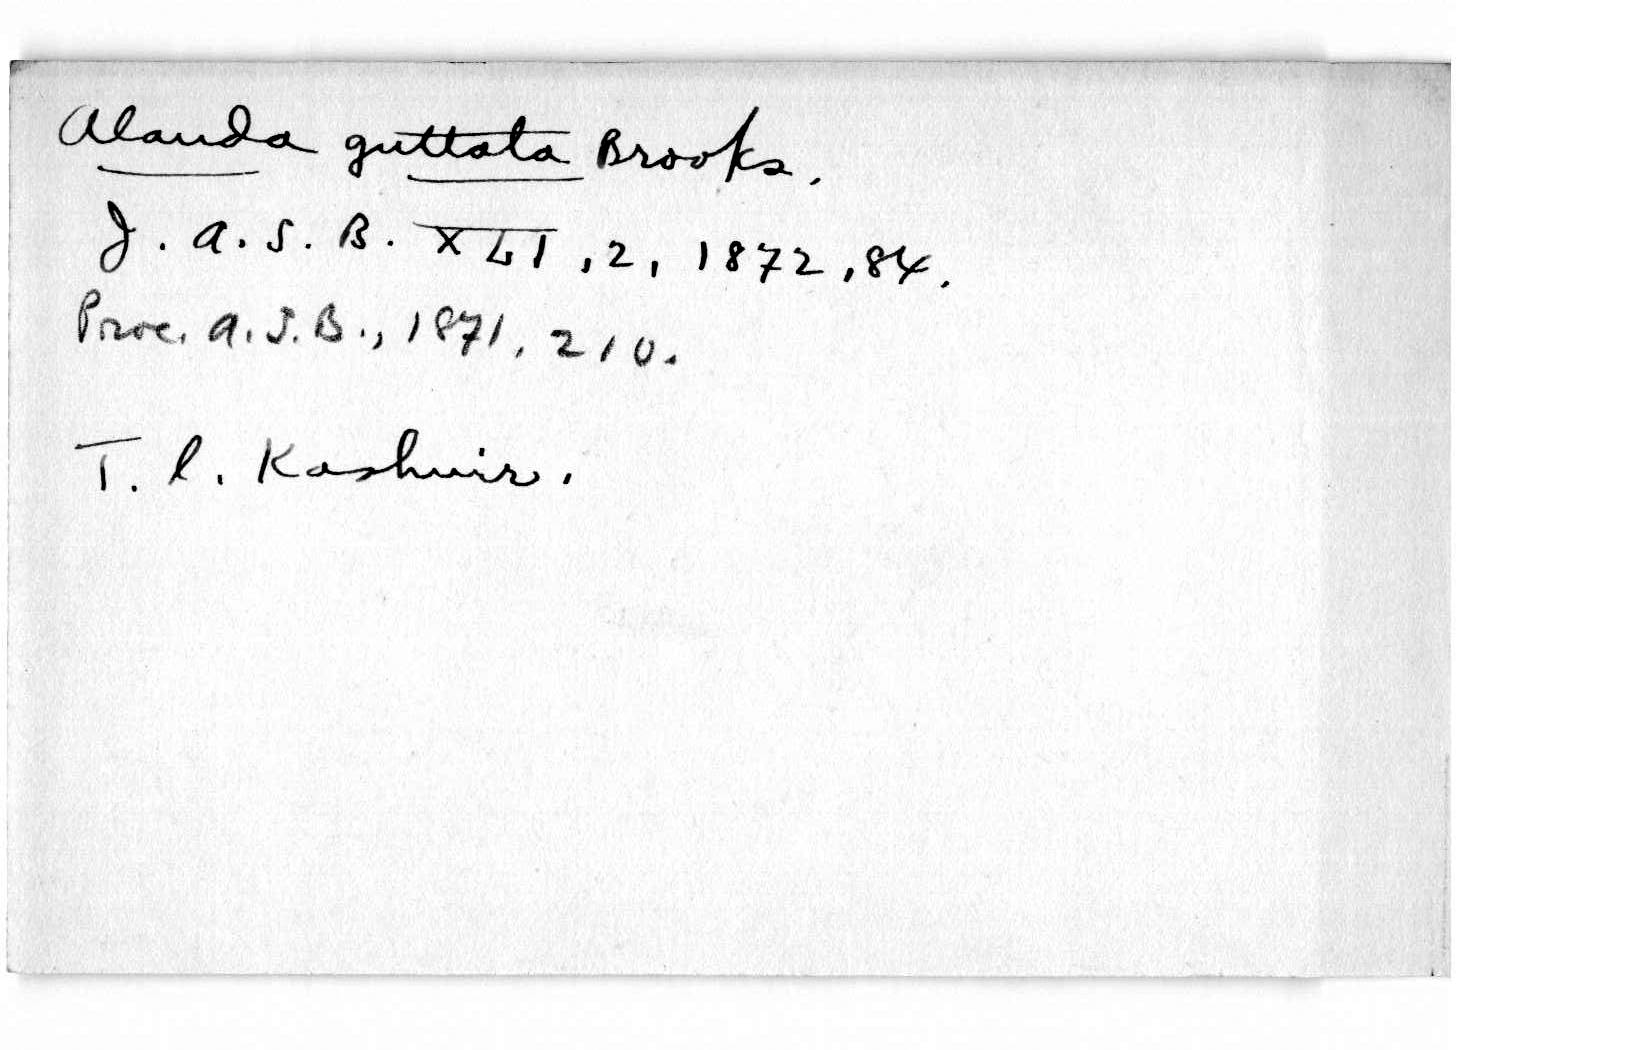 Alauda guttata Brooks.
J. A. S. B. XLI, 2, 1872, 84.
Proc. A. S. B., 1871, 210.
T. l. Kashmir.